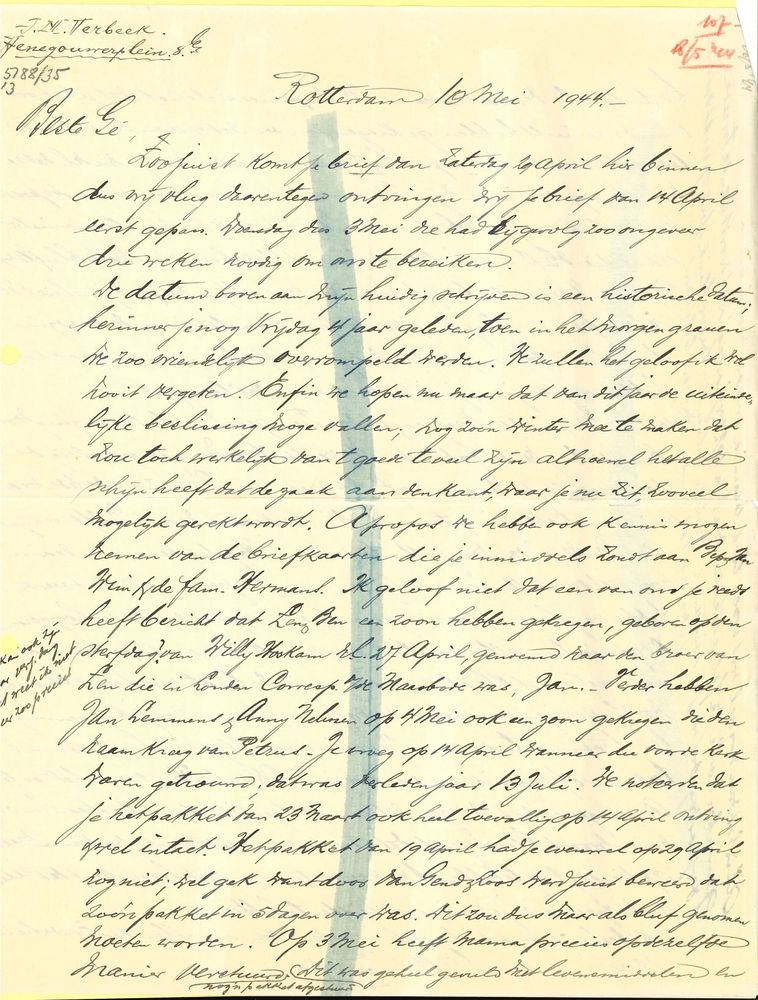 J.M. Verbeek.
Henegouwerplein. 8.
5788/35
13
107
18/5
Rotterdam 10 Mei 1944.-
Beste Gé,
Zoojuist komt je brief van Zaterdag 29 April hier binnen
dus vrij vlug daarentegen ontvingen wij je brief van 14 April
eerst gepas. Woensdag dus 3 Mei die had bijgevolg zoo ongeveer
drie weken noodig om ons te bereiken.
De datum boven aan mijn huidig schrijven is een historische datum;
herinner je nog Vrijdag 4 jaar geleden, toen in het morgengrauen
we zoo vriendelijk overrompeld werden. We zullen het geloof ik wel
nooit vergeten. Enfin we hopen nu maar dat van dit jaar de uiteinde-
lijke beslissing moge vallen; nog zoo'n winter mee te maken dat
zou toch werkelijk van 't goede teveel zijn alhoewel het alle
schijn heeft dat de zaak aan den kant, waar je nu zit, zooveel
mogelijk gerekt wordt. Apropos we hebben ook kennis mogen
nemen van de briefkaarten die je inmiddels zondt aan
Wim & de fam. Hermans. Ik geloof niet dat een van ons je reeds
heeft bericht dat Len & Ben een zoon hebben gekregen, geboren op den
sterfdag? van Willy Hoskam nl. 27 April, genoemd naar den broer van
Len die in Londen Corresp. v/de Maasbode was, Jan. - Verder hebben
Jan Lemmens & Anny Nelissen op 4 Mei ook een zoon gekregen die den
naam kreeg van Petrus. - Je vroeg op 14 April wanneer die voor de kerk
waren getrouwd, dat was verleden jaar 13 Juli. We noteerden dat
je het pakket van 23 Maart ook heel toevallig op 14 April ontving
& wel intact. Het pakket van 19 April had je evenwel op 29 April
nog niet; wel gek want door Van Gend & Loos werd juist beweerd dat
zoo'n pakket in 5 dagen over was. Dit zou dus maar als bluf genomen
moeten worden. Op 3 Mei heeft Mama precies op dezelfde
manier verstuurd. (Dit was geheel gevuld met levensmiddelen en
nog 'n pakket afgestuurd
ook zijn
verj. dag
weet ik niet
zoo precies